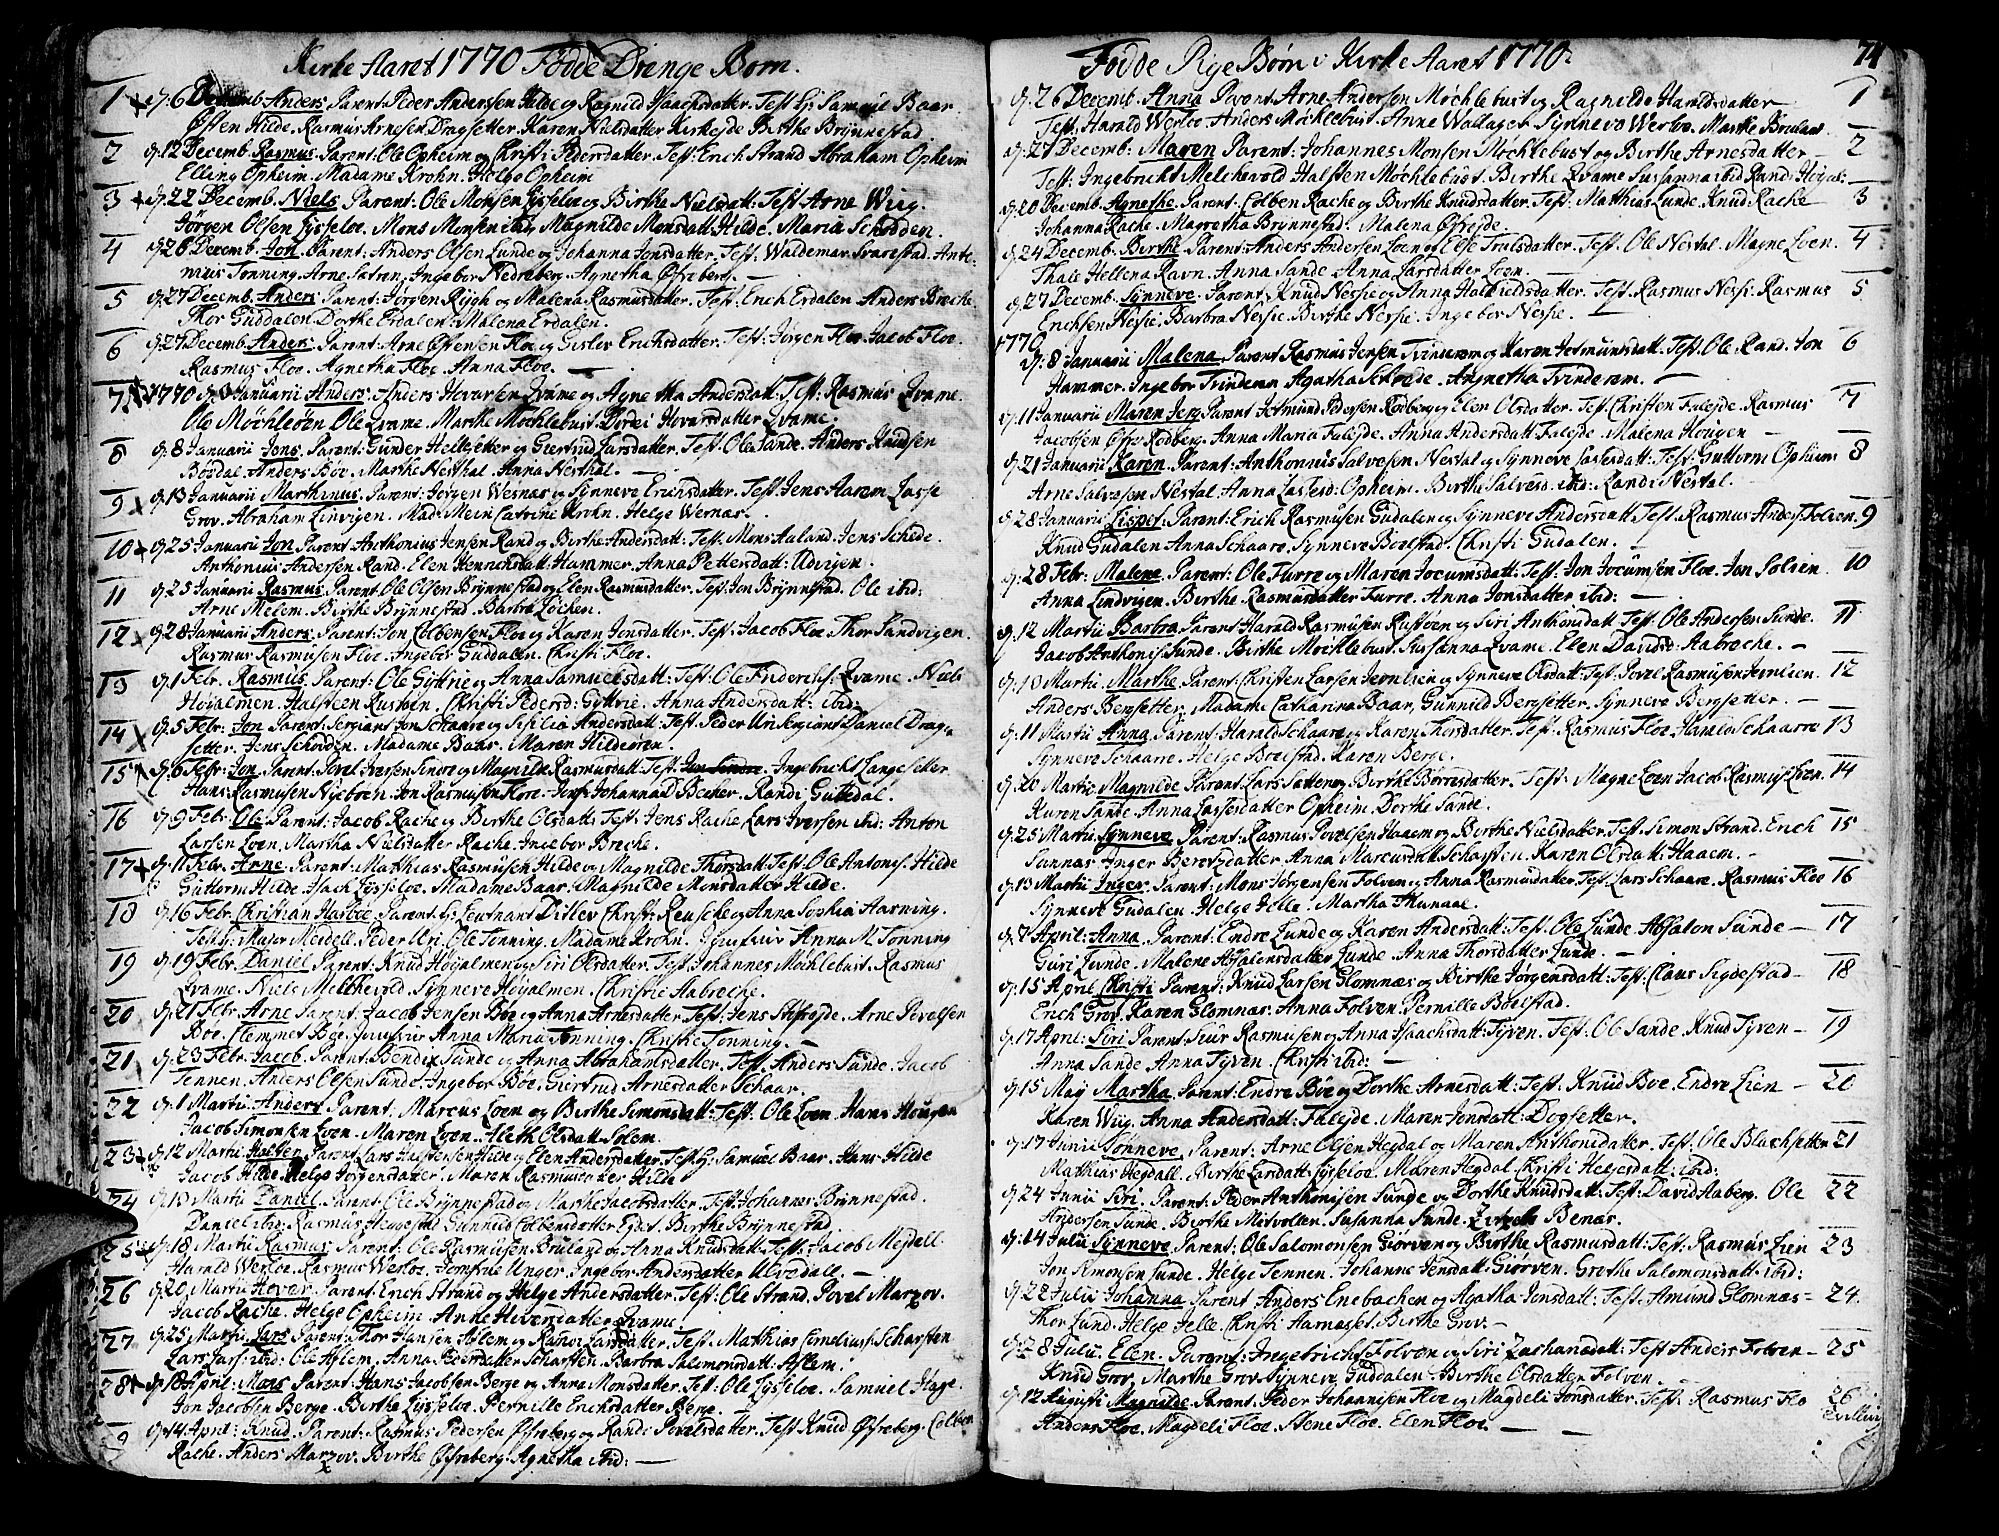 Kirke Aaret 1770 Födde Drenge Börn.
1 d. 6 Decemb. Anders. Parent: Peder Andersen Hilde og Ragnild Isaachsdatter. Test: Hr: Samuel Baar
Østen Hilde. Rasmus Arnesen Dragsetter. Karen Nielsdatter Kirkejde. Birthe Brynnestad.
2 d. 12 Decemb. Rasmus. Parent: Ole Opheim og Christi Pedersdatter. Test: Erich Strand. Abraham Opheim
Elling Opheim. Madame Krohn. Helge Opheim
3 d. 22 Decemb. Niels. Parent: Ole Monsen Lysseloe og Birthe Nielsdatt: Test: Arne Wiig.
Jörgen Olsen Lysseloe. Mons Monsen ibid. Magnilde Monsdatt: Hilde. Maria Schodden.
4 d. 26 Decemb. Jon. Parent: Anders Olsen Lunde og Johanna Jonsdatter. Test: Waldemar Svarestad. Anto
nius Tonning. Arne Sætren. Ingebor Nedreberg. Agnetha Øfreberg. —
5 d. 27 Decemb. Anders. Parent: Jörgen Rygh og Malena Rasmusdatter. Test: Erich Erdalen. Anders Breche
Thor Guddalen. Dorthe Erdalen. Malena Erdalen.
6 d. 27 Decemb. Anders. Parent: Arne Østensen Floe og Gislev Erichsdatter. Test: Jörgen Floe. Jacob Floe.
Rasmus Floe. Agnetha Floe. Anna Floe. —
7 1770 d. Januarii Anders. Anders Hovarsen Qvame og Agnetha Andersdatt: Test: Rasmus Qvame.
Ole Möchleöen. Ole Qvame. Marthe Möchlebust. Dordei Hovarsdatter Qvame
8 d. 8 Januarii Jens. Parent: Gunder Hellesetter og Giertrud Larsdatter. Test: Ole Sande. Anders Knudsen
Bösdal. Anders Böv. Marthe Nesthal. Anna Nesthal. —
9 d. 13 Januarii Marthinus. Parent: Jörgen Wernæs og Synneve Erichsdatter. Test: Jens Aarem. Lasse
Grov. Abraham Lindvigen. Mad: Mein. Catrine Krohn. Helge Wernæs.
10 d. 25 Januarii Jon. Parent: Anthonius Jensen Rand og Birthe Andersdatt: Test: Mons Aaland. Jens Schede.
Anthonius Andersen Rand. Elen Henrichsdatt: Hammer. Anna Pettersdatt: Udvigen.
11 d. 25 Januarii Rasmus. Parent: Ole Olsen Brynnestad og Elen Rasmusdatter. Test: Jon Brynnestad. Ole ibid:
Arne Melem. Birthe Brynnestad. Barbra Löchen.
12 d. 28 Januarii Anders. Parent: Jon Colbensen Floe og Karen Jonsdatter. Test: Jacob Floe. Thor Sandvigen.
Rasmus Rasmusen Floe. Ingebor Guddalen. Christi Floe.
13 d. 1 Febr. Rasmus. Parent: Ole Gyttrie og Anna Samuelsdatt: Test: Ole Friderichs: Qvame. Niels
Höjalmen. Halsteen Rusten. Christi Pedersd: Gyttrie. Anna Andersdatt: ibid:
14 d. 5 Febr. Jon. Parent: Sergiant Jon Schaare og Sesilia Andersdatt: Test: Peder Uri. Sergiant Daniel Drag=
setter. Jens Schodden. Madame Baar. Maren Hildeören.
15 d. 6 Febr. Jon. Parent: Povel Iversen Sindre og Magnilde Rasmusdatt: Test: Jon Sindre. Ingebricht Langesetter
Hans Rasmusen Nyeböen. Jon Rasmusen Flore. Jomf: Johanna D Becher. Randi Guttedal.
16 d. 9 Febr. Ole. Parent: Jacob Rache og Birthe Olsdatt: Test: Jens Rache. Lars Iversen ibid: Anton
Larsen Loen. Martha Nielsdatter Rache. Ingebor Breche.
17 d. 11 Febr. Arne. Parent: Matthias Rasmusen Hilde og Magnilde Thorsdatt: Test: Ole Antonis: Hilde
Guttorm Hilde. Isach Lysseloe. Madame Baar. Magnilde Monsdatter Hilde.
18 d. 16 Febr. Christian Harboe. Parent: Hr: Leutnant Ditlev Christ: Reusche og Anna Sophia Harning.
Test: Hr: Major Meidell. Peder Uri. Ole Tonning. Madame Krohn. Jomfrue Anna M. Tonning
19 d. 19 Febr. Daniel. Parent: Knud Höjalmen og Siri Olsdatter. Test: Johannes Möchlebust. Rasmus
Qvame. Niels Melchevold. Synneve Höjalmen. Christie Aabreche.
20 d. 21 Febr. Arne. Parent: Jacob Jensen Böe og Anna Arnesdatter. Test: Jens Øfrejde. Arne Povelsen
Böe. Clemmet Böe. Jomfrue Anna Maria Tonning. Christie Tonning. —
21 d. 23 Febr. Jacob. Parent: Bendix Sunde og Anna Abrahamsdatter. Test: Anders Sunde. Jacob
Tennen. Anders Olsen Sunde. Ingebor Böe. Giertrud Arnesdatter Schaar.
22 d. 1 Martii Anders. Parent: Marcus Loen og Birthe Simonsdatt: Test: Ole Loen. Hans Hougen
Jacob Simonsen Loen. Maren Loen. Aleth Olsdatt: Solem.
23 d. 12 Martii Halsten. Parent: Lars Halstensen Hilde og Elen Andersdatter. Test: Hr: Samuel Baar. Hans Hilde
Jacob Hilde. Helge Jörgensdatter. Maren Rasmusdatter Hilde
24 d. 13 Martii Daniel. Parent: Ole Brynnestad og Marthe Jacobsdatter. Test: Johannes Brynnestad.
Daniel ibid: Rasmus Heggestad. Gunnild Colbensdatter Eide. Birthe Brynnestad.
25 d. 18 Martii Rasmus. Parent: Ole Rasmusen Bruland og Anna Knudsdatt: Test: Jacob Mejdell.
Harald Werloe. Rasmus Werloe. Jomfrue Unger. Ingebor Andersdatter Ulvedall. —
26 d. 20 Martii Hover. Parent: Erich Strand og Helge Andersdatter. Test: Ole Strand. Povel Marzov.
Jacob Rache. Helge Opheim. Anne Hoversdatter Qvame.
27 d. 25 Martii Lars. Parent: Thor Hansen Aslem og Rande Larsdatter. Test: Mathias Cornelius: Scharsten
Lars Lars: ibid: Ole Aslem. Anna Pedersdatter Scharsten. Barbra Salomonsdatt: Aslem.
28 d. 18 April: Mons. Parent: Hans Jacobsen Berge og Anna Monsdatter. Test: Ole Lysseloe. Samuel Hage.
Jon Jacobsen Berge. Birthe Lysseloe. Pernille Erichsdatter Berge.
9 d. 14 April: Knud. Parent: Rasmus Pedersen Øfreberg og Rande Povelsdatter. Test: Knud Øfreberg. Colben
Rache. Anders Marzov. Birthe Øfreberg. Agnetha ibid: —
Födde Pige Börn i Kirke Aaret 1770. 74
d. 26 Decemb. Anna. Parent: Arne Andersen Möchlebust og Ragnilde Haraldsdatter — 1
Test: Harald Werloe. Anders Möchlebust. Anne Wallager. Synneve Werloe. Marthe Bruland.
d. 27 Decemb: Maren. Parent: Johannes Monsen Möchlebust og Birthe Arnesdatter — 2
Test: Ingebricht Melchevold. Halsten Möchlebust. Birthe Qvame. Susanna ibid. Rand: Höjal:
d. 20 Decemb. Agnethe. Parent: Colben Rache og Birthe Knudsdatter. Test: Matthias Lunde. Knud Rache 3
Johanna Rache. Magretha Brynnestad. Malena Øfrejde.
d. 24 Decemb. Birthe. Parent: Anders Andersen Loen og Else Troelsdatter. Test: Ole Nestal. Magne Loen. 4
Thale Hellena Ravn. Anna Sande. Anna Larsdatter Loen.
d. 27 Decemb. Synneve. Parent: Knud Nessie og Anna Halkieldsdatter. Test: Rasmus Nessie. Rasmus 5
Erichsen Nessie. Barbra Nessie. Birthe Nessie. Ingebor Nessie. —
1770
d. 8 Januarii Malena. Parent: Rasmus Jensen Tvinderem og Karen Jetmundsdatt. Test: Ole Rand. Jon 6
Hammer. Ingebor Tvinderem. Agatha Schrede. Angnetha Tvinderem. —
d. 11 Januarii Maren Jerg. Parent: Jetmund Pedersen Rödberg og Elen Olsdatter. Test: Christen Falejde. Rasmus 7
Jacobsen Øfre Rödberg. Anna Maria Falejde. Anna Andersdatt: Falejde. Malena Hougen —
d. 21 Januarii Karen. Parent: Anthonius Salvesen Nestal og Synneve Lassesdatt: Test: Guttorm Opheim 8
Arne Salvesen Nestal. Anna Lassesd: Opheim. Birthe Salvesd. ibid: Randi Nestal. —
d. 28 Januarii Lispet. Parent: Erich Rasmusen Gudalen og Synneve Andersdatt: Test: Rasmus Anders: Folven. 9
Knud Gudalen. Anna Schaare. Synneve Boelstad. Christi Gudalen. —
d: 28 Febr: Malene. Parent: Ole Furre og Maren Jocumsdatt: Test: Jon Jocumsen Floe. Jon Solsen 10
Anna Lindvigen. Birthe Rasmusdatter Furre. Anna Jonsdatter ibid: —
d. 12 Martii Barbra. Parent: Harald Rasmusen Raffoen og Siri Anthonisdatt: Test: Ole Andersen Sunde. 11
Jacob Anthonis: Sunde. Birthe Möchlebust. Susanna Qvame. Elen Davidsd: Aabreche. —
d. 10 Martii. Marthe. Parent: Christen Larsen Jevnlien og Synneve Olsdatt: Test: Povel Rasmusen Jevnlien. 12
Anders Bergsetter. Madame Catharina Baar. Gunnild Bergsetter. Synneve Bergsetter. —
d. 11 Martii Anna. Parent: Harald Schaare og Karen Thorsdatter. Test: Rasmus Floe. Harald Schaarre 13
Synneve Schaare. Helge Boelstad. Karen Berge.
d. 20 Martii Magnilde. Parent: Lars Sætten og Birthe Börresdatter. Test: Magne Loen. Jacob Rasmus: Lien. 14
Karen Sande. Anna Lassesdatter Opheim. Dorthe Sande.
d. 25 Martii Synneve. Parent: Rasmus Povelsen Haaem og Birthe Nielsdatter. Test: Simon Strand. Erich 15
Sannæs. Inger Berentzdatter. Anna Marcusdatt: Scharsten. Karen Olsdatt: Haaem. —
d. 13 Martii Inger. Parent: Mons Jörgensen Folven og Anna Rasmusdatter. Test: Lars Schaare. Rasmus Floe 16
Synneve Gudalen. Helge Jelle. Martha Thunaal.
d. 7 April: Anna. Parent: Endre Lunde og Karen Andersdatt: Test: Ole Lunde. Absalon Sunde — 17
Guri Lunde. Malene Absalonsdatter Lunde. Anna Thorsdatter Lunde. —
d. 15 April Christi. Parent: Knud Larsen Glomnæs og Birthe Jörgensdatt: Test: Claus Sigdestad — 18
Erich Grov. Karen Glomnæs. Anna Folven. Pernille Böelstad.
d. 17 April: Siri. Parent: Siur Rasmusen og Anna Isaachsdatt: Tyven. Test: Ole Sande. Knud Tyven — 19
Anna Sande. Anna Tyven. Christi ibid: —
d. 15 Maj Martha. Parent: Endre Böe og Dorthe Arnesdatt: Test: Knud Böe. Endre Lien — 20
Karen Wiig. Anna Andersdatt: Falejde. Maren Jensdatt: Dogsetter.
d. 17 Junii Sönneve. Parent: Arne Olsen Hegdal og Maren Anthonisdatter. Test: Ole Blachsetter 21
Mathias Hegdall. Birthe Larsdatt: Lysseloe. Maren Hegdal. Christi Helgesdatt: ibid:
d. 24 Junii Siri. Parent: Peder Anthonisen Sunde og Dorthe Knudsdatt: Test: David Aaberg. Ole 22
Andersen Sunde. Birthe Mitvolter. Susanna Sunde. Benæs.
d. 14 Julii Synneve. Parent: Ole Salomonsen Giørven og Birthe Rasmusdatt: Test: Rasmus Lien 23
Jon Simonsen Sunde. Helge Tennen. Johanne Jensdatt: Giørven. Grethe Salomonsdatt: ibid:
d. 22 Julii Johanna. Parent: Anders Enebachen og Agatha Jonsdatt: Test: Amund Glomnæs — 24
Thor Lund. Helge Jelle. Christi Harnæsset. Birthe Grov —
d. 28 Julii. Elen. Parent: Ingebricht Folven og Siri Zachariasdatt: Test: Anders Folven — 25
Knud Grov. Marthe Grov. Synneve Guddalen. Birthe Olsdatter Folven. —
d. 12 Augusti Magnilde. Parent: Peder Johannisen Floe og Magdeli Jonsdatter. Test: Rasmus Flo 26
Anders Floe. Magdeli Floe. Stene Floe. Elen Floe. —